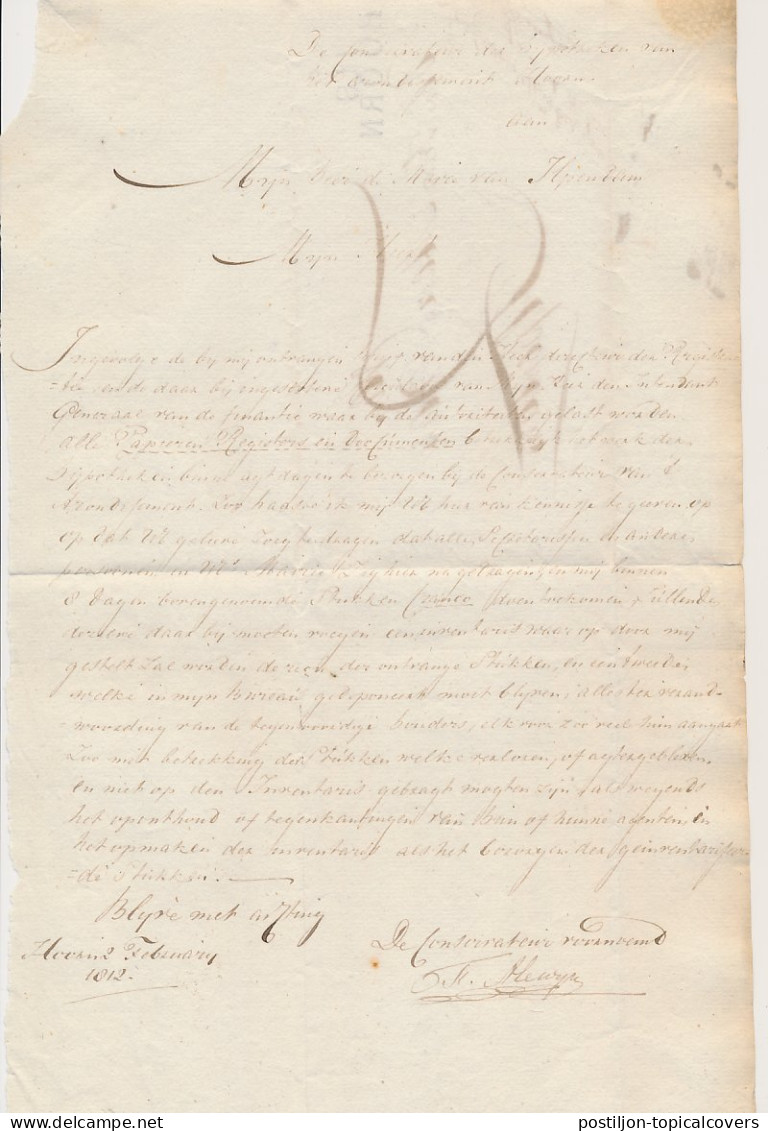 De Conservateur der Hypotheken van
het arrondissement Hoorn
aan
Mijn Heer de Maire van
Mijn Heer
Ingevolge de bij mij ontvangen van den Heer directeur der Registra
=tie en de daar bij van Mijn Heer den Intendant
Generaal van de finantie waar bij de gelast worden
alle Papieren Registers en Documenten betrekkelijk het werk der
Hypotheken binnen agt dagen te bezorgen bij de Conservateur van t
Arondisement. Zoo haast ik mij UE hier van kennisse te geven op
op dat UE gelieve Zorg te dragen dat alle Secretarissen en andere
persoonen in UEs Mairie Zig hier na gedragen en mij binnen
8 Dagen bovengenoemde Stukken franco doen toekomen, Zullende
dezelve daar bij moeten voegen een inventaris waar op door mij
gestelt Zal worden de der ontvange Stukken, en een tweede
welke in mijn Bureau gedeponeert moet blyven, alles ter verand=
=woording van de tegenwoordige houders, elk voor zoo veel hun aangaat
Zoo met betrekking der Stukken welke verloren, of agtergebleven
en niet op den Inventaris gebragt mogten zijn, als wegends
het oponthoud of tegenkantingen van hun of hunne agenten in
het opmaken der inventaris als het bezorgen der geinventariseer
=de Stukken.
Blyve met agting
Hoorn 2 February
1812.
De Conservateur voornoemd
F. Alewyn
postiljon-topicalcovers